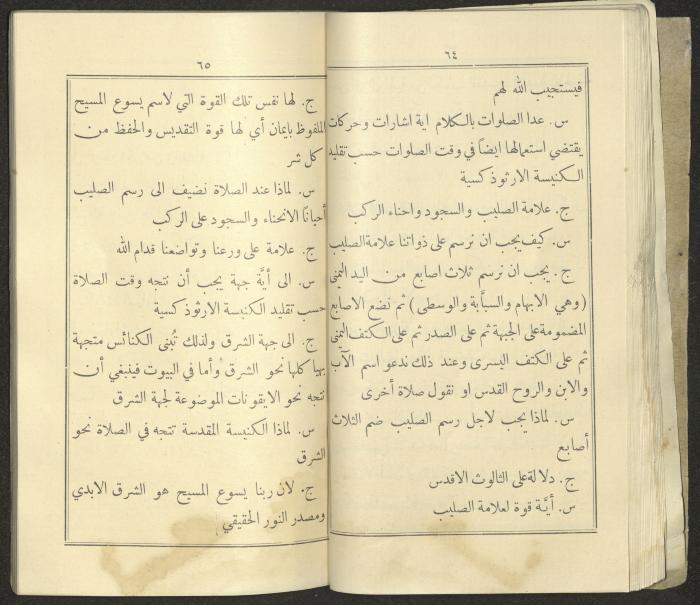 ٦٤
فيستجيب الله لهم
س. عدا الصلوات بالكلام اية اشارات وحركات
يقتضي استعمالها ايضاً في وقت الصلوات حسب تقليد
الكنيسة الارثوذكسية
ج. علامة الصليب والسجود واحناء الركب
س. كيف يجب ان نرسم على ذواتنا علامة الصليب
ج. يجب ان نرسم ثلاث اصابع من اليد اليمنى
(وهي الابهام والسبَّابة والوسطى) ثم نضع الاصابع
المضمومة على الجبهة ثم على الصدر ثم على الكتف اليمنى
ثم على الكتف اليسرى وعند ذلك ندعو اسم الآب
والابن والروح القدس او نقول صلاة أخرى
س. لماذا يجب لاجل رسم الصليب ضم الثلاث
أصابع
ج. دلالة على الثالوث الاقدس
س. أيَّة قوة لعلامة الصليب
٦٥
ج. لها نفس تلك القوة التي لاسم يسوع المسيح
الملفوظ بايمان أي لها قوة التقديس والحفظ من
كل شر
س. لماذا عند الصلاة نضيف الى رسم الصليب
أحياناً الانحناء والسجود على الركب
ج. علامة على ورعنا وتواضعنا قدام الله
س. الى أيَّة جهة يجب أن نتجه وقت الصلاة
حسب تقليد الكنيسة الارثوذكسية
ج. الى جهة الشرق ولذلك تُبنى الكنائس متجهة
كلها نحو الشرق وأما في البيوت فينبغي أن
نتجه نحو الايقونات الموضوعة لجهة الشرق
س. لماذا الكنيسة المقدسة تتجه في الصلاة نحو
الشرق
ج. لان ربنا يسوع المسيح هو الشرق الابدي
ومصدر النور الحقيقي